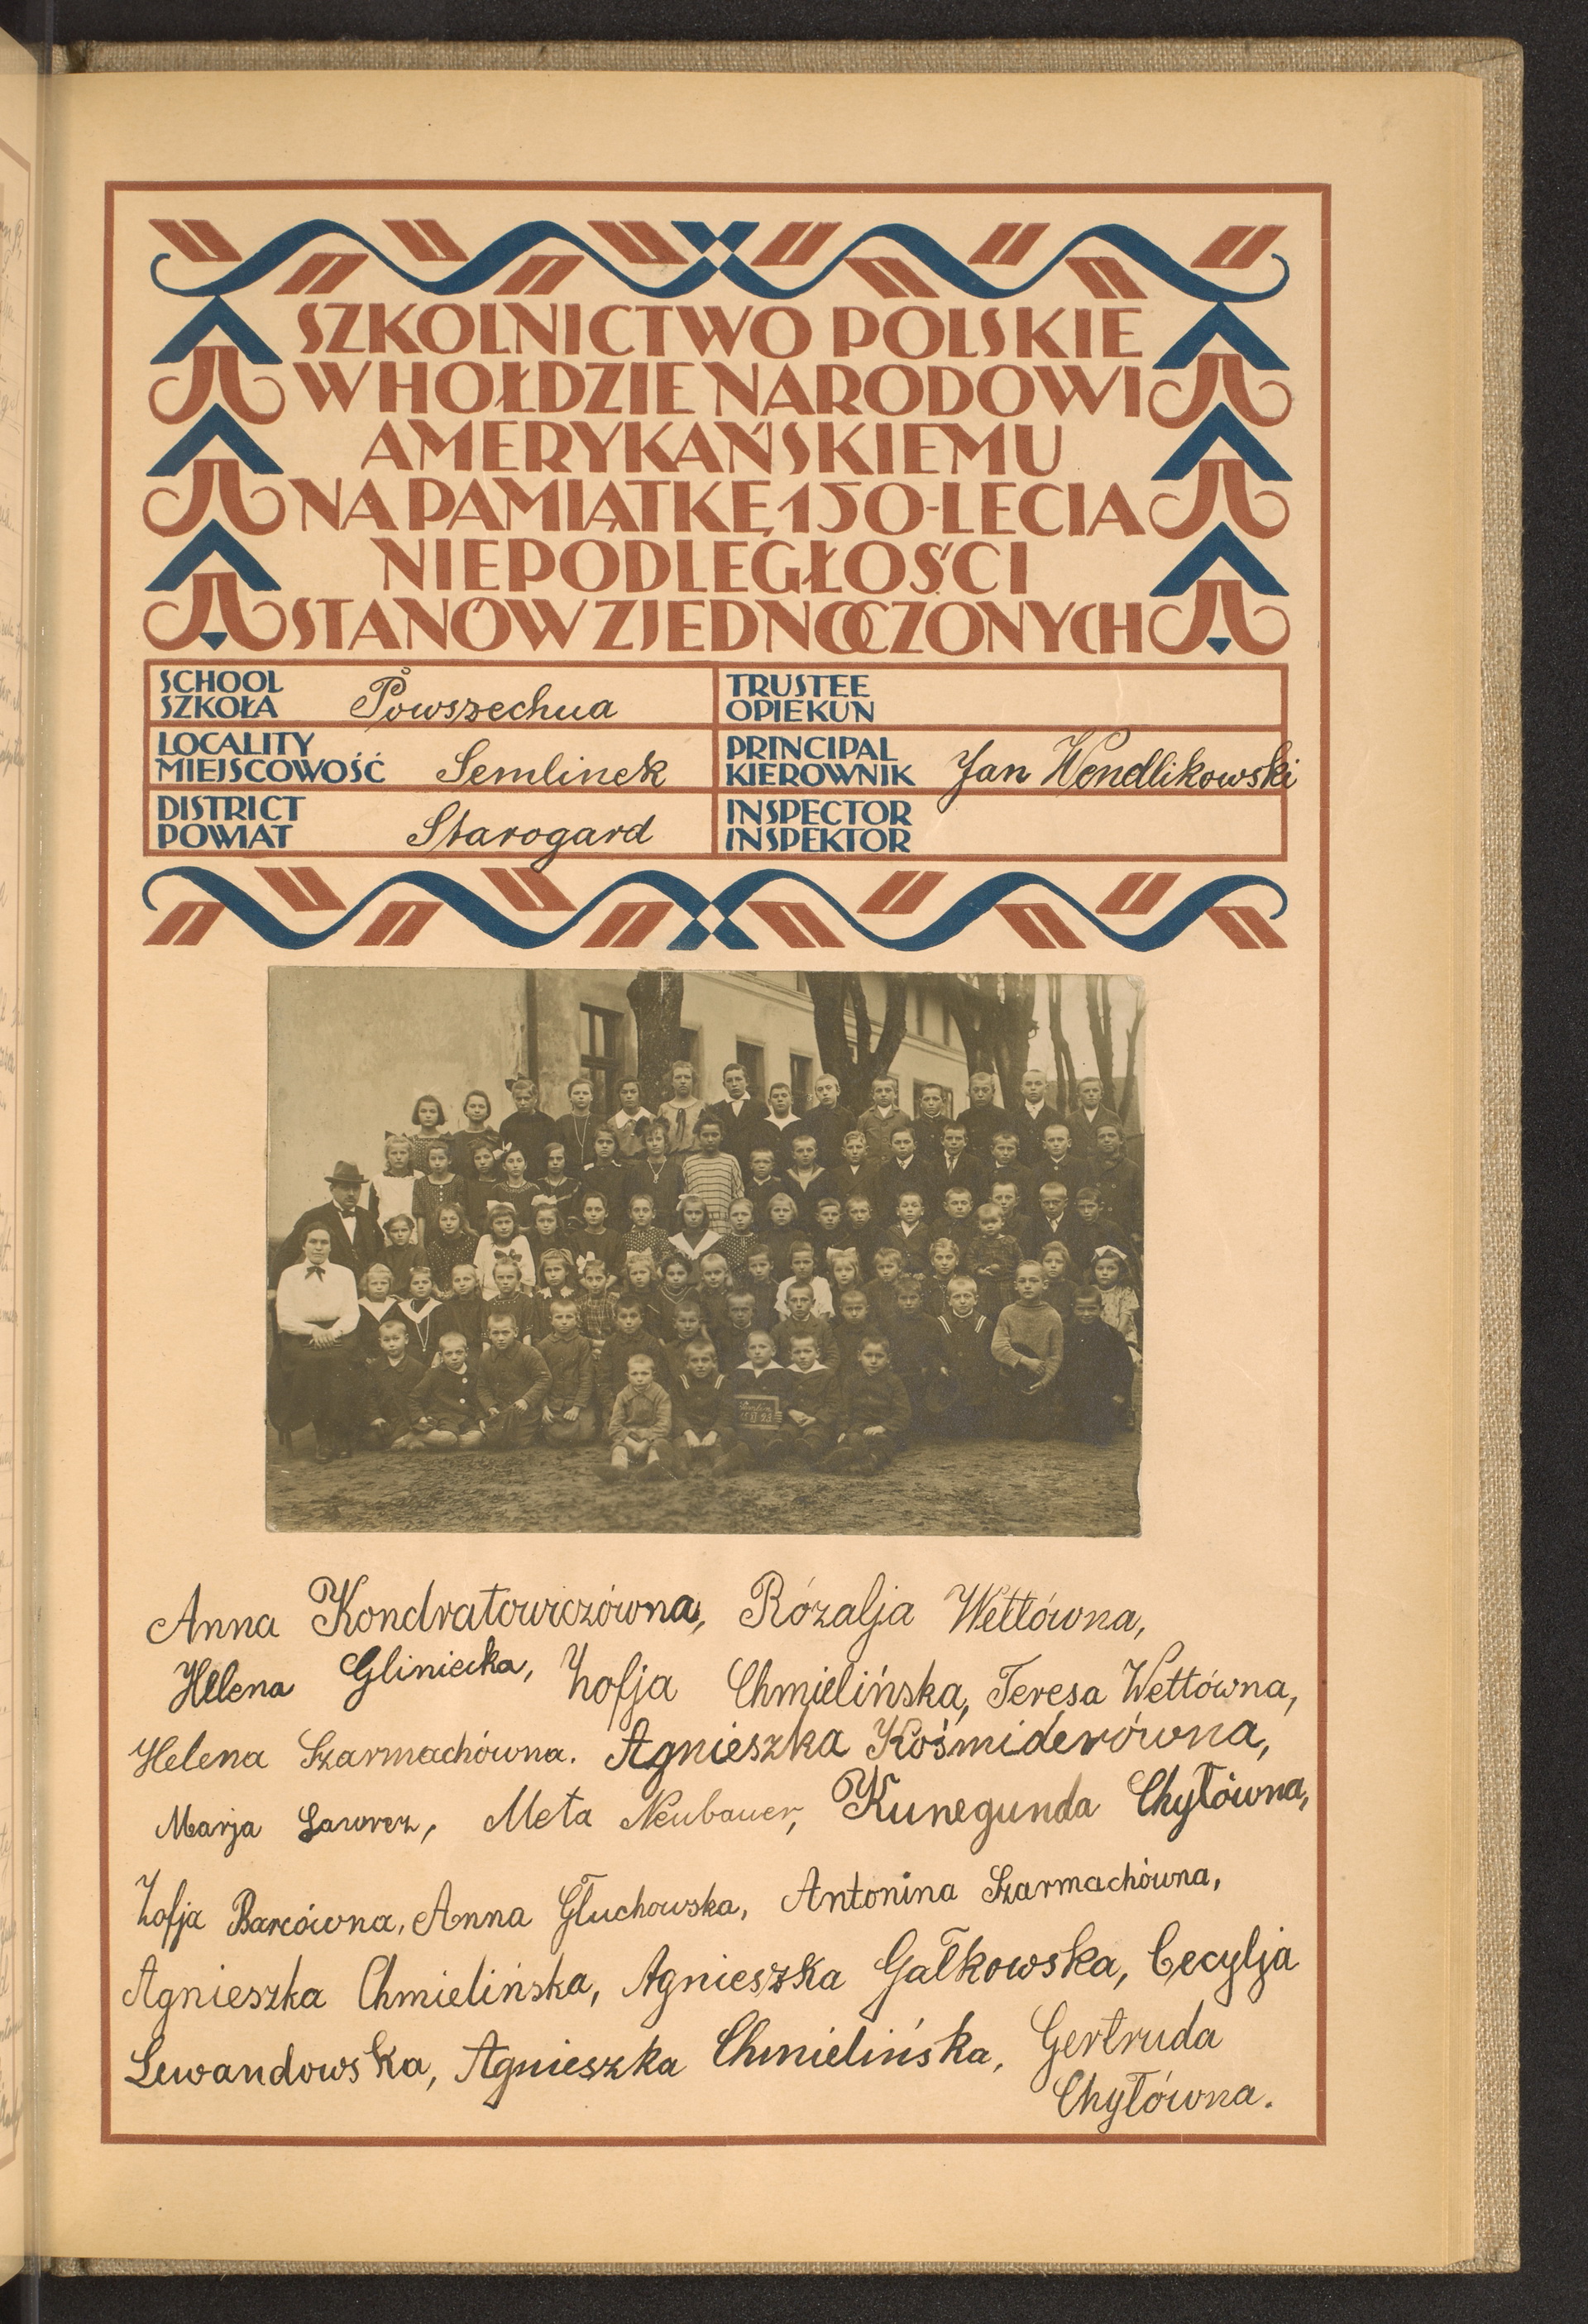 SZKOLNICTWO POLSKIE
W HOŁDZIE NARODOWI
AMERYKAŃSKIEMU
NA PAMIĄTKĘ 150-LECIA
NIEPODLEGŁOŚCI
STANÓW ZJEDNOCZONYCH
SCHOOL
SZKOŁA Powszechna
TRUSTEE
OPIEKUN
LOCALITY
MIEJSCOWOŚĆ Semlinek
PRINCIPAL
KIEROWNIK Jan Wendlikowski
DISTRICT
POWIAT Starogard
INSPECTOR
INSPEKTOR
Anna Kondratowiczówna, Rózalja Wettówna,
Helena Gliniecka, Zofja Chmielińska, Teresa Wettówna,
Helena Szarmachówna. Agnieszka Kośmiderówna,
Marja Lawrez, Meta Neubauer, Kunegunda Chyłówna,
Zofja Barcówna, Anna Głuchowska, Antonina Szarmachówna,
Agnieszka Chmielińska, Agnieszka Gałkowska, Cecylja
Lewandowska, Agnieszka Chmielińska, Gertruda
Chyłówna.